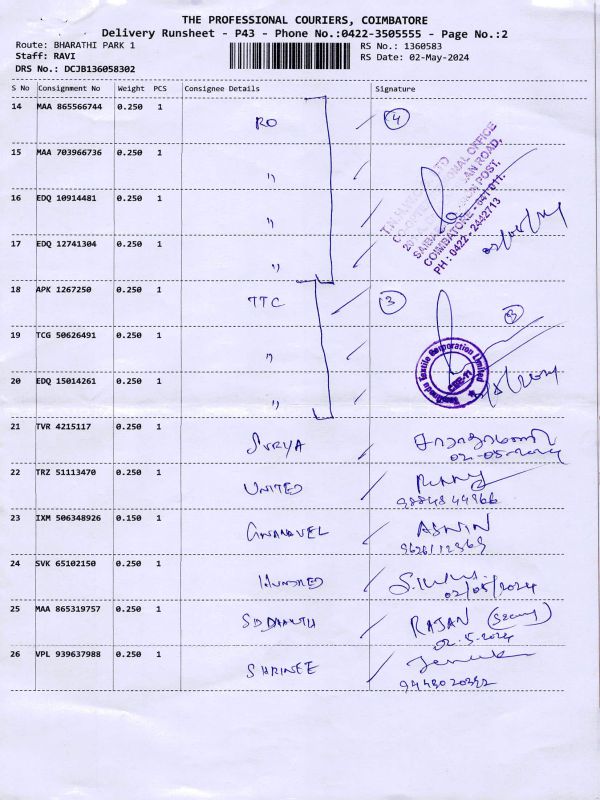 THE PROFESSIONAL COURIERS, COIMBATORE
Delivery Runsheet - P43 - Phone No.:0422-3505555 - Page No.:2
Route: BHARATHI PARK 1 RS No.: 1360583
Staff: RAVI RS Date: 02-May-2024
DRS No.: DCJB136058302
S No Consignment No Weight PCS Consignee Details Signature
14 MAA 865566744 0.250 1 RO 4
15 MAA 703966736 0.250 1 "
16 EDQ 10914481 0.250 1 "
17 EDQ 12741304 0.250 1 "
COIMBATORE - 641 011.
PH : 0422 - 2442713
18 APK 1267250 0.250 1 TTC 3
19 TCG 50626491 0.250 1 "
20 EDQ 15014261 0.250 1 "
Tamilnadu Textile Corporation Limited
CBE-11
21 TVR 4215117 0.250 1 SURYA
02-05-2024
22 TRZ 51113470 0.250 1 UNITED
23 IXM 506348926 0.150 1 GNANAVEL ASWIN
24 SVK 65102150 0.250 1 HUNDRED
02/05/2024
25 MAA 865319757 0.250 1 RAJAN
02.5.2024
26 VPL 939637988 0.250 1 SHRINEE